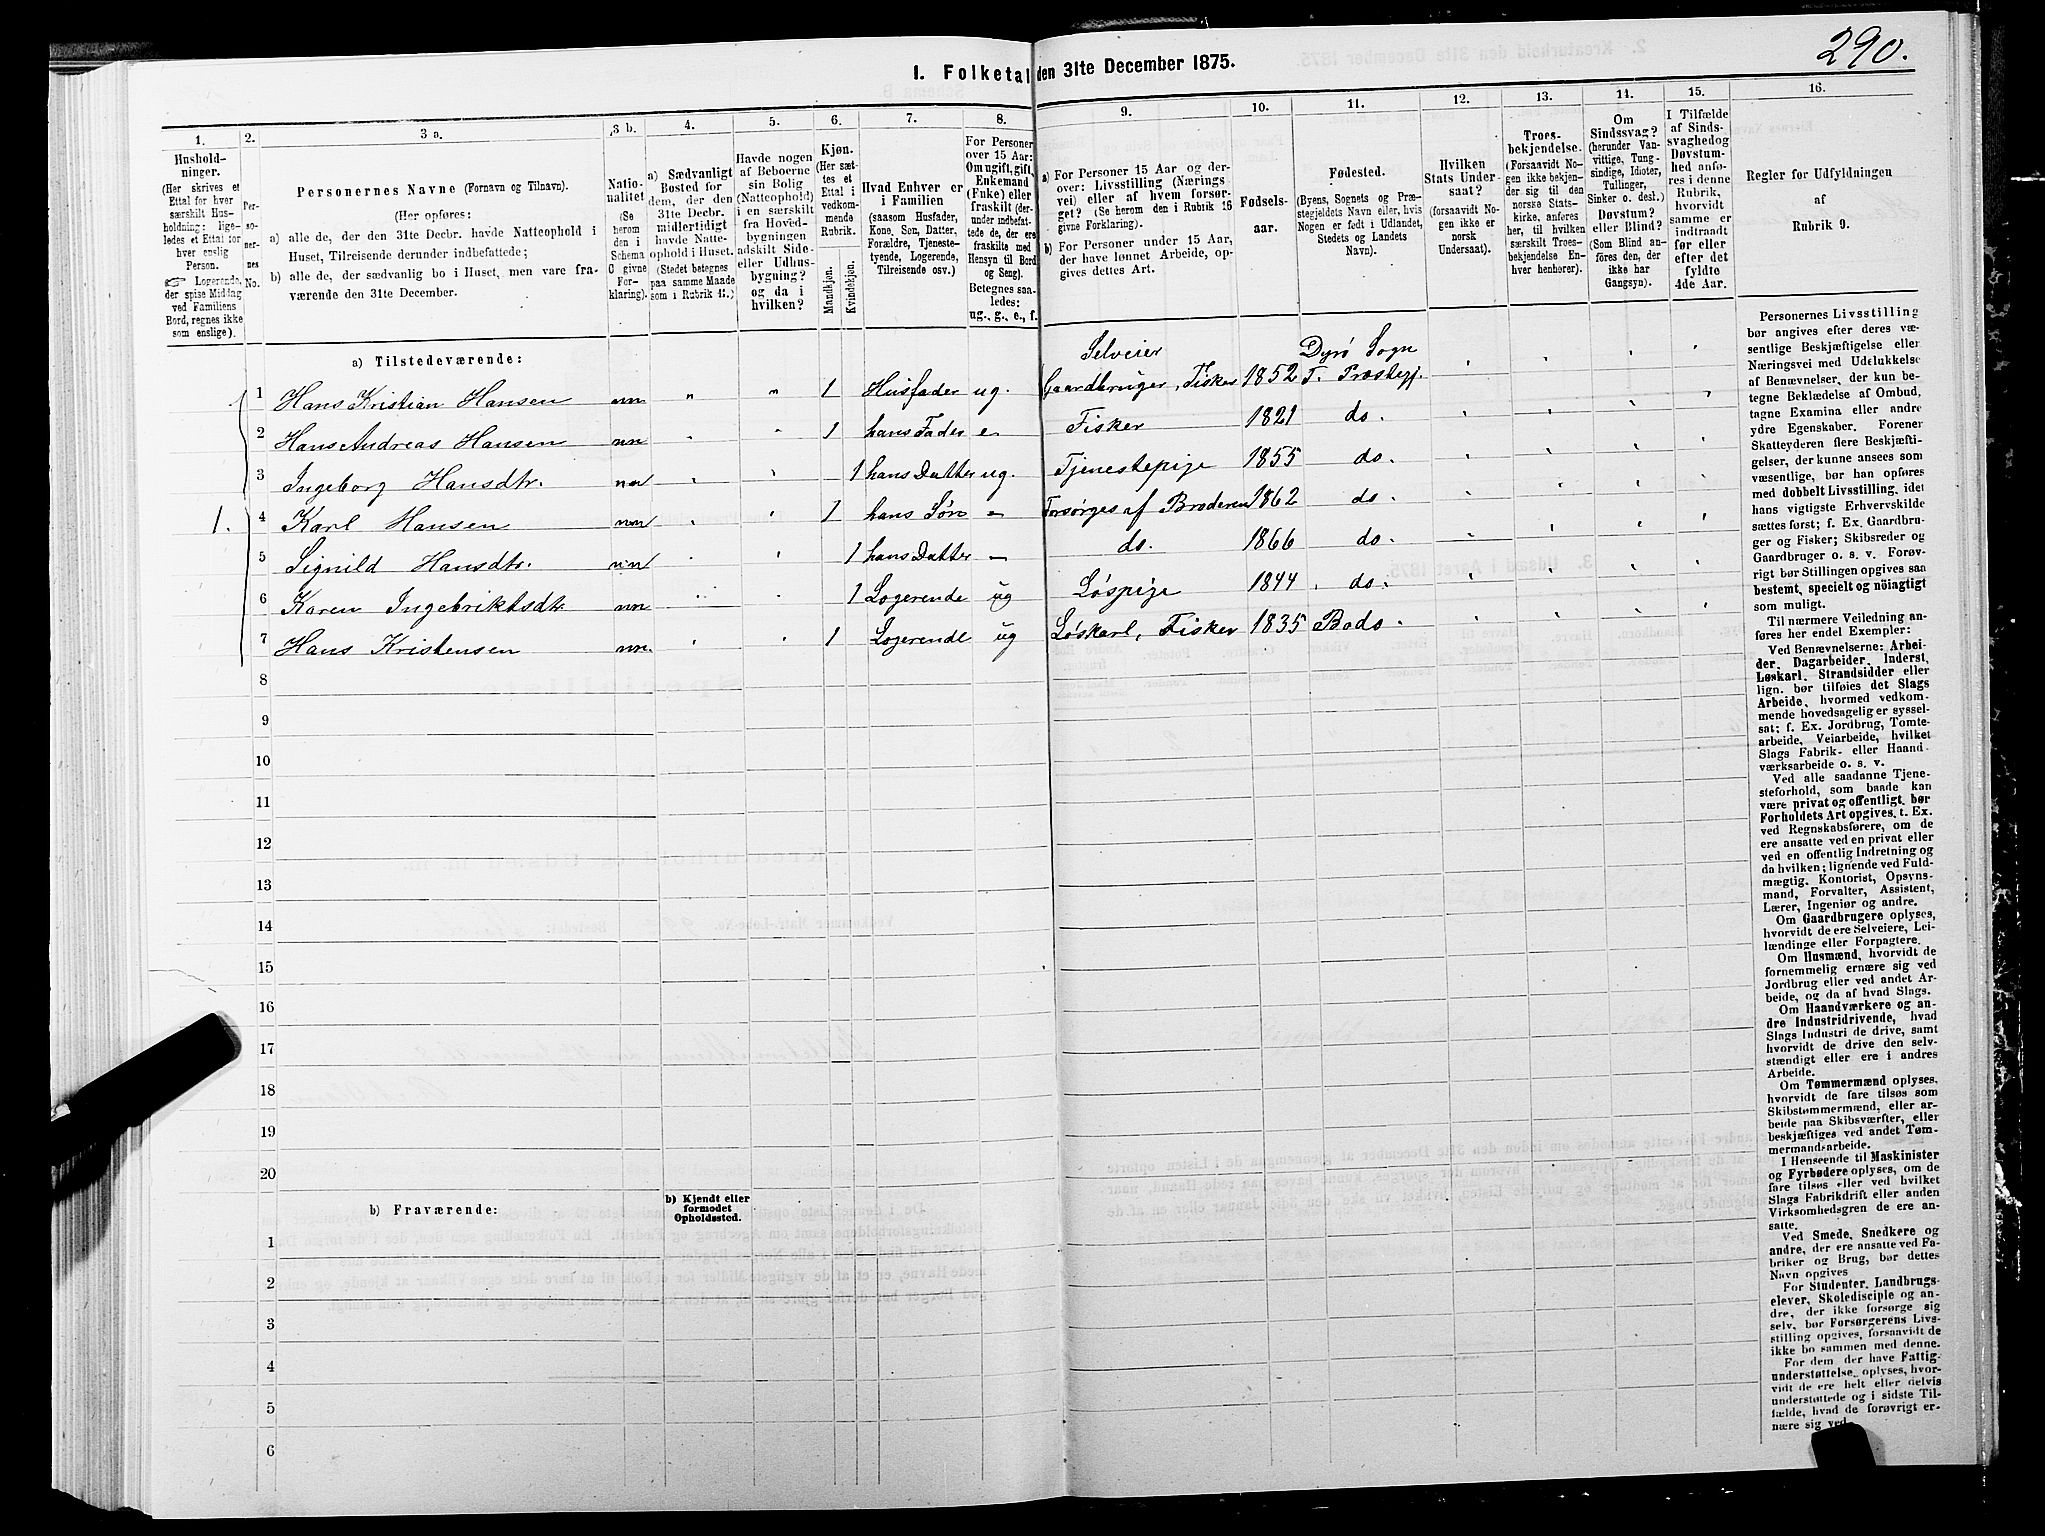 290.
I. Folketal den 31te December 1875.
1.
Hushold-
ninger.
(Her skrives et
Ettal for hver
særskilt Hus-
holdning; lige-
ledes et Ettal for
hver enslig
Person.
☞ Logerende,
der spise Middag
ved Familiens
Bord, regnes ikke
som enslige).
2.
Per-
so-
ner-
nes
No.
3 a.
Personernes Navne (Fornavn og Tilnavn).
(Her opføres:
a) alle de, der den 31te Decbr. havde Natteophold i
Huset, Tilreisende derunder indbefattede;
b) alle de, der sædvanlig bo i Huset, men vare fra-
værende den 31te December.
3 b.
Natio-
nalitet
(Se
herom
den i
Schema
C givne
For-
klaring).
4.
a) Sædvanligt
Bosted for
dem, der den
31te Decbr.
midlertidigt
havde Natte-
ophold i Huset.
(Stedet betegnes
paa samme Maade
som i Rubrik 11.)
5.
Havde nogen
af Beboerne
sin Bolig
(Natteophold)
i en særskilt
fra Hoved-
bygningen
adskilt Side-
eller Udhus-
bygning?
og da i
hvilken?
6.
Kjøn.
(Her sæt-
tes et
Ettal i
vedkom-
mende
Rubrik.
Mandkjøn.
Kvindekjøn.
7.
Hvad Enhver er
i Familien
(saasom Husfader,
Kone, Søn, Datter,
Forældre, Tjeneste-
tyende, Logerende,
Tilreisende osv.)
8.
For Personer
over 15 Aar:
Om ugift, gift,
Enkemand
(Enke) eller
fraskilt (der-
under indbefat-
tede de, der ere
fraskilte med
Hensyn til Bord
og Seng).
Betegnes saa-
ledes:
ug., g., e., f.
9.
a) For Personer 15 Aar og der-
over: Livsstilling (Nærings-
vei) eller af hvem forsør-
get? (Se herom den i Rubrik 16
givne Forklaring).
b) For Personer under 15 Aar,
der have lønnet Arbeide, op-
gives dettes Art.
10.
Fødsels-
aar.
11.
Fødested.
(Byens, Sognets og Præ-
stegjeldets Navn eller, hvis
Nogen er født i Udlandet,
Stedets og Landets
Navn).
12.
Hvilken
Stats Under-
saat?
(forsaavidt No-
gen ikke er
norsk
Undersaat).
13.
Troes-
bekjendelse.
(Forsaavidt No-
gen ikke bekjen-
der sig til den
norske Stats-
kirke, anføres
her, til hvilken
særskilt Troes-
bekjendelse En-
hver henhører).
14.
Om
Sindssvag?
(herunder Van-
vittige, Tung-
sindige, Idioter,
Tullinger,
Sinker o. desl.)
Døvstum?
eller Blind?
(Som Blind an-
føres den, der
ikke har
Gangsyn).
15.
I Tilfælde
af Sinds-
svaghed og
Døvstum-
hed anfø-
res i denne
Rubrik,
hvorvidt
samme er
indtraadt
før eller
efter det
fyldte
4de Aar.
16.
Regler for Udfyldningen
af
Rubrik 9.
a) Tilstedeværende:
Selveier Dyrø Sogn
1 Hans Kristian Hansen nn " " 1 Husfader ug. Gaardbruger, Fisker 1852 T. Præstegj.
2 Hans Andreas Hansen nn 1 hans Fader e Fisker 1821 do.
3 Ingeborg Hansdtr. nn 1 hans Datter ug. Tjenestepige 1855 do.
1. 4 Karl Hansen nn 1 hans Søn – Forsørges af Broderen 1862 do.
5 Signild Hansdtr. nn 1 hans Datter – do. 1866 do.
6 Karen Ingebriktsdtr nn 1 Logerende ug Løspige 1844 do.
7 Hans Kristensen nn. 1 Logerende ug Løskarl, Fisker 1835 Bodo
8
9
10
11
12
13
14
15
16
17
18
19
20
b) Fraværende:
b) Kjendt eller
formodet
Opholdssted.
1
2
3
4
5
6
Personernes Livsstilling
bør angives efter deres væ-
sentlige Beskjæftigelse eller
Næringsvei med Udelukkelse
af Benævnelser, der kun be-
tegne Beklædelse af Ombud,
tagne Examina eller andre
ydre Egenskaber. Forener
Skatteyderen flere Beskjæfti-
gelser, der kunne ansees som
væsentlige, bør han opføres
med dobbelt Livsstilling, idet
hans vigtigste Erhvervskilde
sættes først; f. Ex. Gaardbru-
ger og Fisker; Skibsreder og
Gaardbruger o. s. v. Forøv-
rigt bør Stillingen opgives saa
bestemt, specielt og nöiagtigt
som muligt.
Til nærmere Veiledning an-
føres her endel Exempler:
Ved Benævnelserne: Arbei-
der, Dagarbeider, Inderst,
Løskarl, Strandsidder eller
lign. bør tilføies det Slags
Arbeide, hvormed vedkom-
mende hovedsagelig er syssel-
sat; f. Ex. Jordbrug, Tomte-
arbeide, Veiarbeide, hvilket
Slags Fabrik- eller Haand-
værksarbeide o. s. v.
Ved alle saadanne Tjene-
steforhold, som baade kan
være privat og offentligt, bør
Forholdets Art opgives, t. Ex.
ved Regnskabsførere, om de
ere ansatte ved en privat eller
ved en offentlig Indretning og
da hvilken; lignende ved Fuld-
mægtig, Kontorist, Opsyns-
mand, Forvalter, Assistent,
Lærer, Ingeniør og andre.
Om Gaardbrugere oplyses,
hvorvidt de ere Selveiere, Lei-
lændinge eller Forpagtere.
Om Husmænd, hvorvidt de
fornemmelig ernære sig ved
Jordbrug eller ved andet Ar-
beide, og da af hvad Slags.
Om Haandværkere og an-
dre Industridrivende, hvad
Slags Industri de drive, samt
hvorvidt de drive den selv-
stændigt eller ere i andres
Arbeide.
Om Tømmermænd oplyses,
hvorvidt de fare tilsøs som
Skibstømmermænd, eller ar-
beide paa Skibsværfter, eller
beskjæftiges ved andet Tøm-
mermandsarbeide.
I Henseende til Maskinister
og Fyrbødere oplyses, om de
fare tilsøs eller ved hvilket
Slags Fabrikdrift eller anden
Virksomhedsgren de ere an-
satte.
Ved Smede, Snedkere og
andre, der ere ansatte ved Fa-
briker og Brug, bør dettes
Navn opgives
For Studenter, Landbrugs-
elever, Skoledisciple og an-
dre, der ikke forsørge sig
selv, bør Forsørgerens Livs-
stilling opgives, forsaavidt de
ikke bo sammen med denne.
For dem, der have Fattig-
understøttelse, oplyses, hvor-
vidt de ere helt eller delvis
understøttede og i sidste Til-
fælde, hvad de forøvrigt er-
nære sig ved.